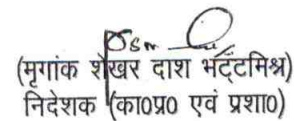 (मृगांक शेखर दाश भट्टमिश्र)
निदेशक (का०प्र० एवं प्रशा०)